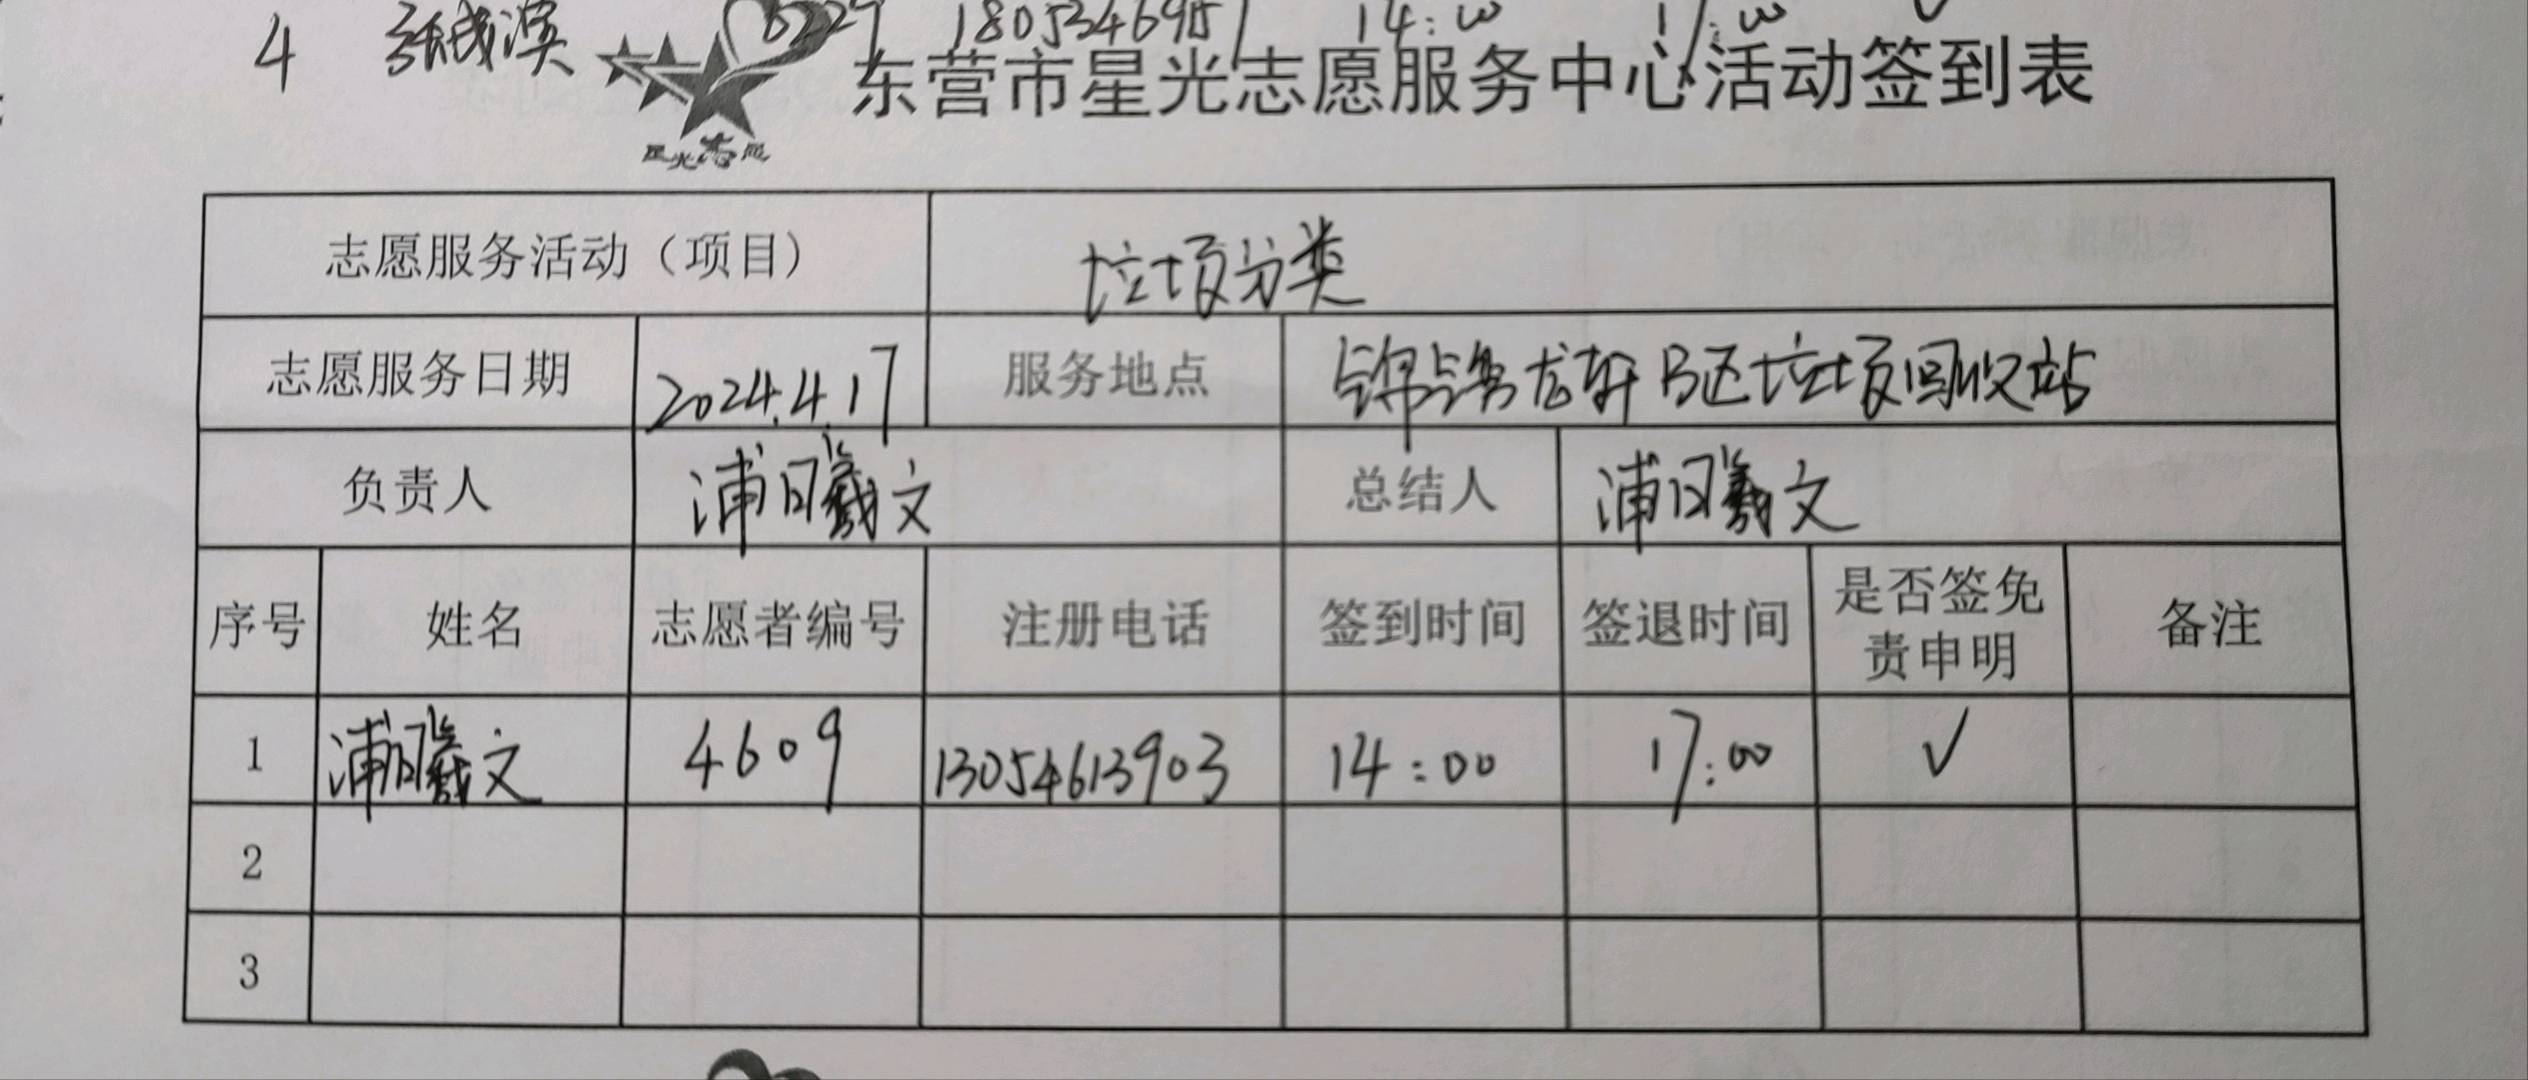 4 张诚淏 6229 1805346951 14:00 17:00 ✓
东营市星光志愿服务中心活动签到表
星光志愿
志愿服务活动（项目） 垃圾分类
志愿服务日期 2024.4.17 服务地点 锦绣龙轩B区垃圾回收站
负责人 浦曦文 总结人 浦曦文
序号 姓名 志愿者编号 注册电话 签到时间 签退时间 是否签免责申明 备注
1 浦曦文 4609 13054613903 14:00 17:00 ✓
2
3